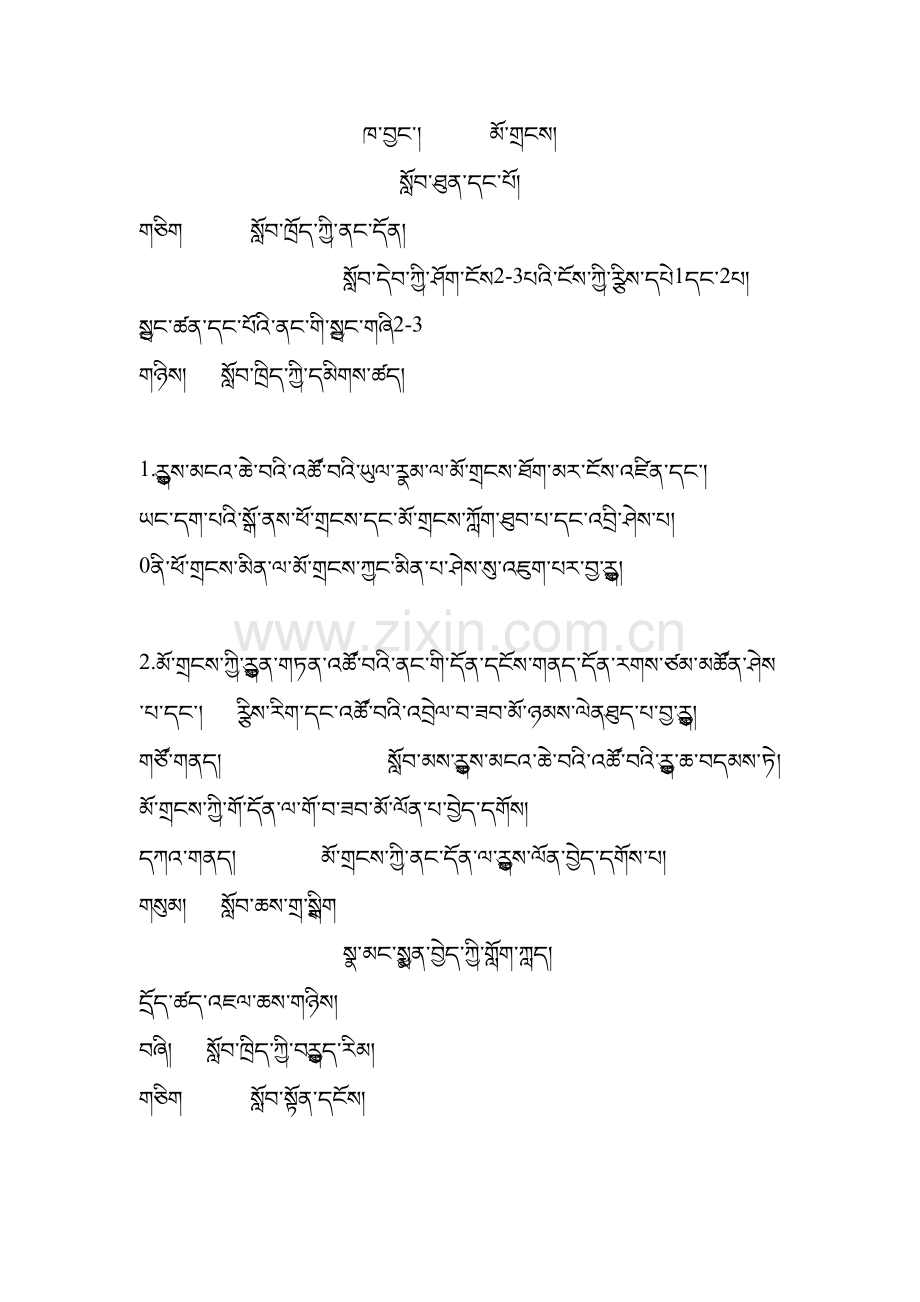 ཁ་བྱང་།      མོ་གྲངས།
སློབ་ཐུན་དང་པོ།
གཅིག      སློབ་ཁྲོད་ཀྱི་ནང་དོན།
སློབ་དེབ་ཀྱི་ཤོག་ངོས2-3པའི་ངོས་ཀྱི་རྩིས་དཔེ1དང་2པ།
སྦྱང་ཚན་དང་པོའི་ནང་གི་སྦྱང་གཞི2-3
གཉིས།   སློབ་ཁྲིད་ཀྱི་དམིགས་ཚད།
1.རྒྱུས་མངའ་ཆེ་བའི་འཚོ་བའི་ཡུལ་རྣམ་ལ་མོ་གྲངས་ཐོག་མར་ངོས་འཛིན་དང་།
ཡང་དག་པའི་སྒོ་ནས་ཕོ་གྲངས་དང་མོ་གྲངས་ཀློག་ཐུབ་པ་དང་འབྲི་ཤེས་པ།
0ནི་ཕོ་གྲངས་མིན་ལ་མོ་གྲངས་ཀྱང་མིན་པ་ཤེས་སུ་འཇུག་པར་བྱ་རྒྱུ།
www.zixin.com.cn
2.མོ་གྲངས་ཀྱི་རྒྱུན་གཏན་འཚོ་བའི་ནང་གི་དོན་དངོས་གནད་དོན་རགས་ཙམ་མཚོན་ཤེས
་པ་དང་།   རྩིས་རིག་དང་འཚོ་བའི་འབྲེལ་བ་ཟབ་མོ་ཉམས་ལེནཐུད་པ་བྱ་རྒྱུ།
གཙོ་གནད།      སློབ་མས་རྒྱུས་མངའ་ཆེ་བའི་འཚོ་བའི་རྒྱུ་ཆ་བདམས་ཏེ།
མོ་གྲངས་ཀྱི་གོ་དོན་ལ་གོ་བ་ཟབ་མོ་ལོན་པ་བྱེད་དགོས།
དཀའ་གནད།      མོ་གྲངས་ཀྱི་ནང་དོན་ལ་རྒྱུས་ལོན་བྱེད་དགོས་པ།
གསུམ།   སློབ་ཆས་གྲ་སྒྲིག
སྣ་མང་སྨྱན་བྱེད་ཀྱི་གློག་ཀླད།
དྲོད་ཚད་འཇལ་ཆས་གཉིས།
བཞི།   སློབ་ཁྲིད་ཀྱི་བརྒྱུད་རིམ།
གཅིག      སློབ་སྟོན་དངོས།